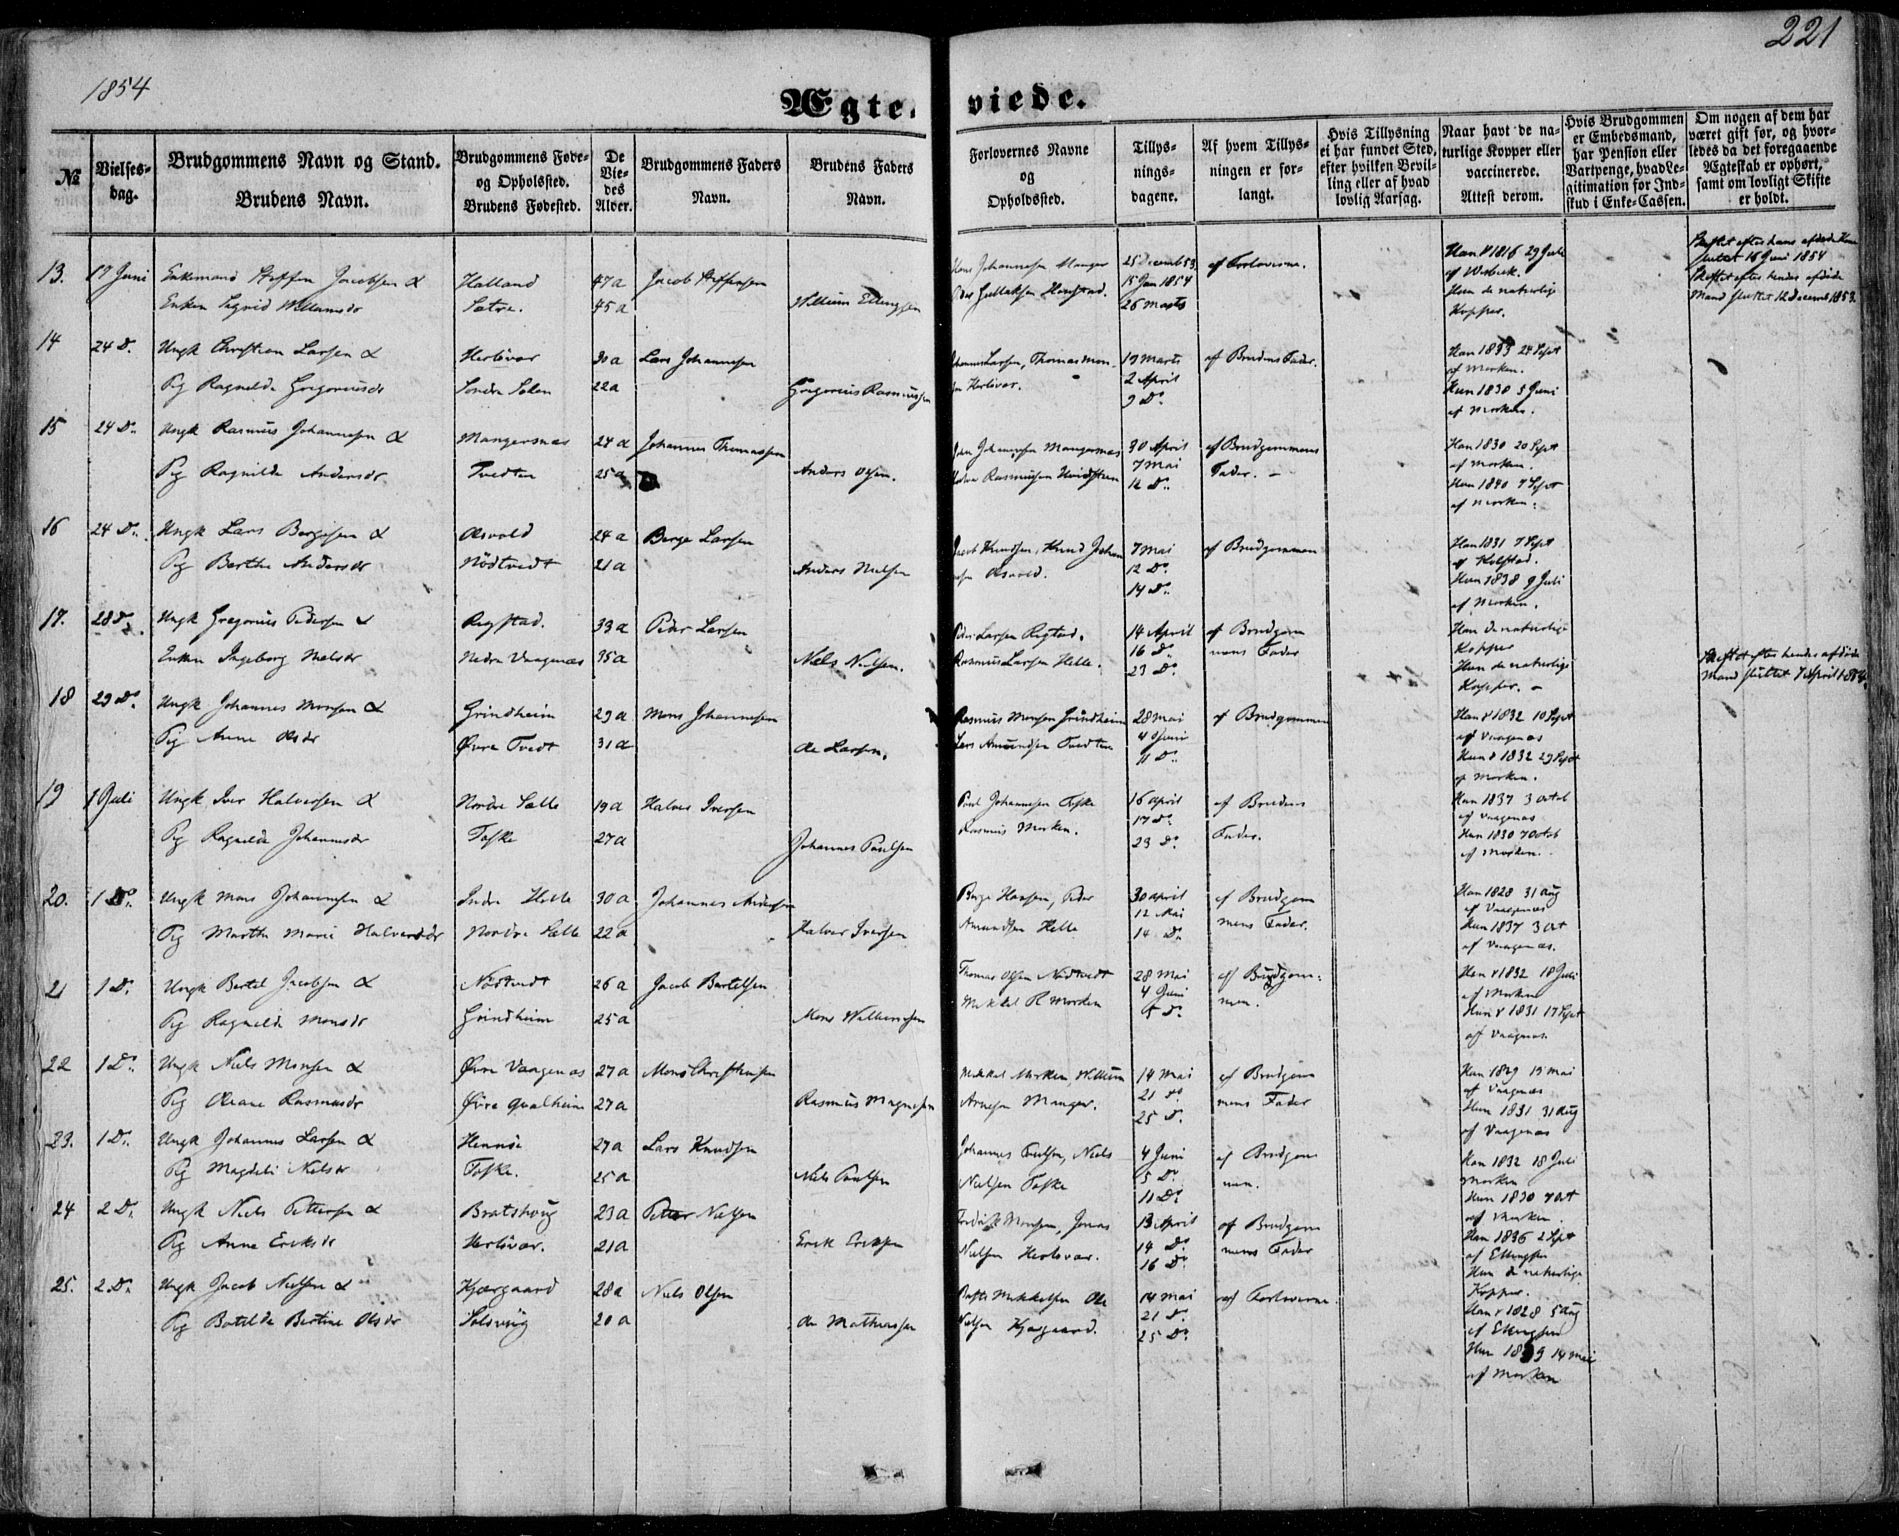 221
1854
Ægteviede.
№
Vielses-
dag.
Brudgommens Navn og Stand.
Brudens Navn.
Brudgommens Føde-
og Opholssted.
Brudens Fødested.
De
Vie-
des
Alder.
Brudgommens Faders
Navn.
Brudens Faders
Navn.
Forlovernes Navne
og
Opholdssted.
Tillys-
nings-
dagene.
Af hvem Tillys-
ningen er for-
langt.
Hvis Tillysning
ei har fundet Sted,
efter hvilken Bevil-
ling eller af hvad
lovlig Aarsag.
Naar havt de na-
turlige Kopper eller
vaccinerede.
Attest derom.
Hvis Brudgommen
er Embedsmand,
har Pension eller
Vartpenge, hvad Le-
gitimation for Ind-
skud i Enke-Cassen.
Om nogen af dem har
været gift før, og hvor-
ledes da det foregaaende
Ægteskab er ophørt,
samt om lovligt Skifte
er holdt.
13. 17 Juni Enkemand Steffen Jacobsen & Halland 47 a Jacob Steffensen
Enken Sigrid Willumsdr Sætre. 45 a Willum Ellingsen
Johannesen Manger 25 Decemb 53 af Forloverne.
15 Jan 1854
26 Marts
Han v 1816 29 Juli
Hun de naturlige
Kopper.
Skiftet efter hans afdøde Kone
sluttet 16 Juni 1854
Skiftet efter hendes afdøde
Mand sluttet 12 Decemb 1853.
14 24 D. Ungk Christian Larsen & Herlövær 30 a Lars Johannesen
Pg Ragnilde Gregoriusdr Söndre 22 a Gregorius Rasmussen
Larsen, Thomas Mon-
sen Herlövær. 19 Marts af Brudens Fader.
2 April
9 D.
Han 1833 24 Sept
af Morken.
Hun 1830 5 Juni
af Morken.
15 24 D. Ungk Rasmus Johannesen & Mangersnæs 24 a Johannes Thomassen
Pg Ragnilde Andersdr Tvedten 25 a Anders Olsen.
Johannesen Mangersnæs 30 April af Brudgommens
Rasmussen 7 Mai Fader. –
12 D.
Han 1830 20 Sept
af Morken.
Hun 1840 7 Sept
af Morken.
16 24 D. Ungk Lars Börgesen & Aasvold 24 a Börge Larsen
Pg Berthe Andersdr Nödtvedt 21 a Anders Nielsen
Jacob Knudsen, Knud Johan-
nesen Aasvold. 7 Mai af Brudgommen
12 D.
14 D.
Han 1831 7 Sept
af
Hun 1838 9 Juli
af Morken.
17. 28 D. Ungk Gregorius Pedersen & Rigstad. 33 a Peder Larsen
Enken Ingeborg Nielsdr Nedre Vaagenæs 35 a Niels Nielsen.
Peder Larsen Rigstad. 14 April af Brudgom
Rasmus Larsen Helle. 16 D. mens Fader
23 D.
Han de naturlige
Kopper
Hun de naturlige
Kopper. –
Skiftet efter hendes afdøde
Mand sluttet 7 April 1854.
18 29 D. Ungk Johannes Monsen & Grindheim 29 a Mons Johannesen
Pg Anne Olsdr Övre Tvedt 31 a Ole Larsen.
Rasmus Monsen Grindheim 28 Mai af Brudgommen
Lars Amundsen Tvedten 4 Juni
11 D.
Han v 1832 10 Sept
af Vaagenæs
Hun v 1832 29 Sept
af Morken.
19 1 Juli Ungk Iver Halversen & Nordre Sæle 19 a Halver Iversen
Pg Ragnilde Johannesdr Toske 27 a Johannes Poulsen
Poul Johannesen Toske 16 April af Brudens
Rasmus Morken. 17 D. Fader.
23 D.
Han 1837 3 Octob
af Vaagenæs
Hun 1830 7 Octob
af Morken.
20. 1 D. Ungk Mons Johannesen & Indre Helle 30 a Johannes Andersen
Pg Marthe Marie Halversdr Nordre Sæle 22 a Halver Iversen
Börge Hansen, Peder 30 April af Brudgom
Amundsen Helle 12 Mai mens Fader.
14 D.
Han 1828 31 Aug
af Vaagenæs
Hun 1837 3 Oct
af Vaagenæs.
21 1 D. Ungk Bertel Jacobsen & Nödtvedt 26 a Jacob Bertelsen
Pg Ragnilde Monsdr Grindheim 25 a Mons Willumsen
Thomas Olsen Nödtvedt 28 Mai af Brudgom-
Mikkel R Morken 4 Juni men.
5 D.
Han v 1832 18 Juli
af Morken
Hun v 1831 17 Sept
af Vaagenæs.
22 1 D. Ungk Niels Monsen & Övre Vaagenæs 27 a Mons Christensen
Pg Oleane Rasmusdr Övre Qvalheim 27 a Rasmus Magnesen
Mikkel Morken, Willum 14 Mai af Brudgom
Arnesen Manger. 21 D. mens Fader
25 D.
Han 1829 19 Mai
af Vaagenæs
Hun 1831 31 Aug
af Vaagenæs
23. 1 D. Ungk Johannes Larsen & Hennöe 27 a Lars Knudsen
Pg Magdeli Nielsdr Toske. 25 a Niels Poulsen
Johannes Poulsen, Niels 4 Juni af Brudgom
Nielsen Toske 5 D. men.
11 D.
Han 1832 18 Juli
Morken
Hun 1830 7 Oct
af Morken
24 2 D. Ungk Niels Pettersen & Bratshoug 23 a Petter Nielsen
Pg Anne Eriksdr Herlövær. 21 a Erik Eriksen
Monsen, Jonas 13 April af Brudgom
Nielsen Herlövær. 14 D. mens Fader
16 D.
Han 1836 2 Sept
af Ellingsen
Hun de naturlige
Kopper.
25. 2 D. Ungk Jacob Nielsen & Kjærgaard 28 a Niels Olsen
Pg Botilde Bertine Olsdr Solsvig 20 a Ole Mathiassen
Mikkelsen Ole 14 Mai af Forloverne.
Nielsen Kjærgaard. 21 D.
25 D.
Han v 1828 5 Aug
af Ellingsen
Hun 1839 14 Mai
af Morken